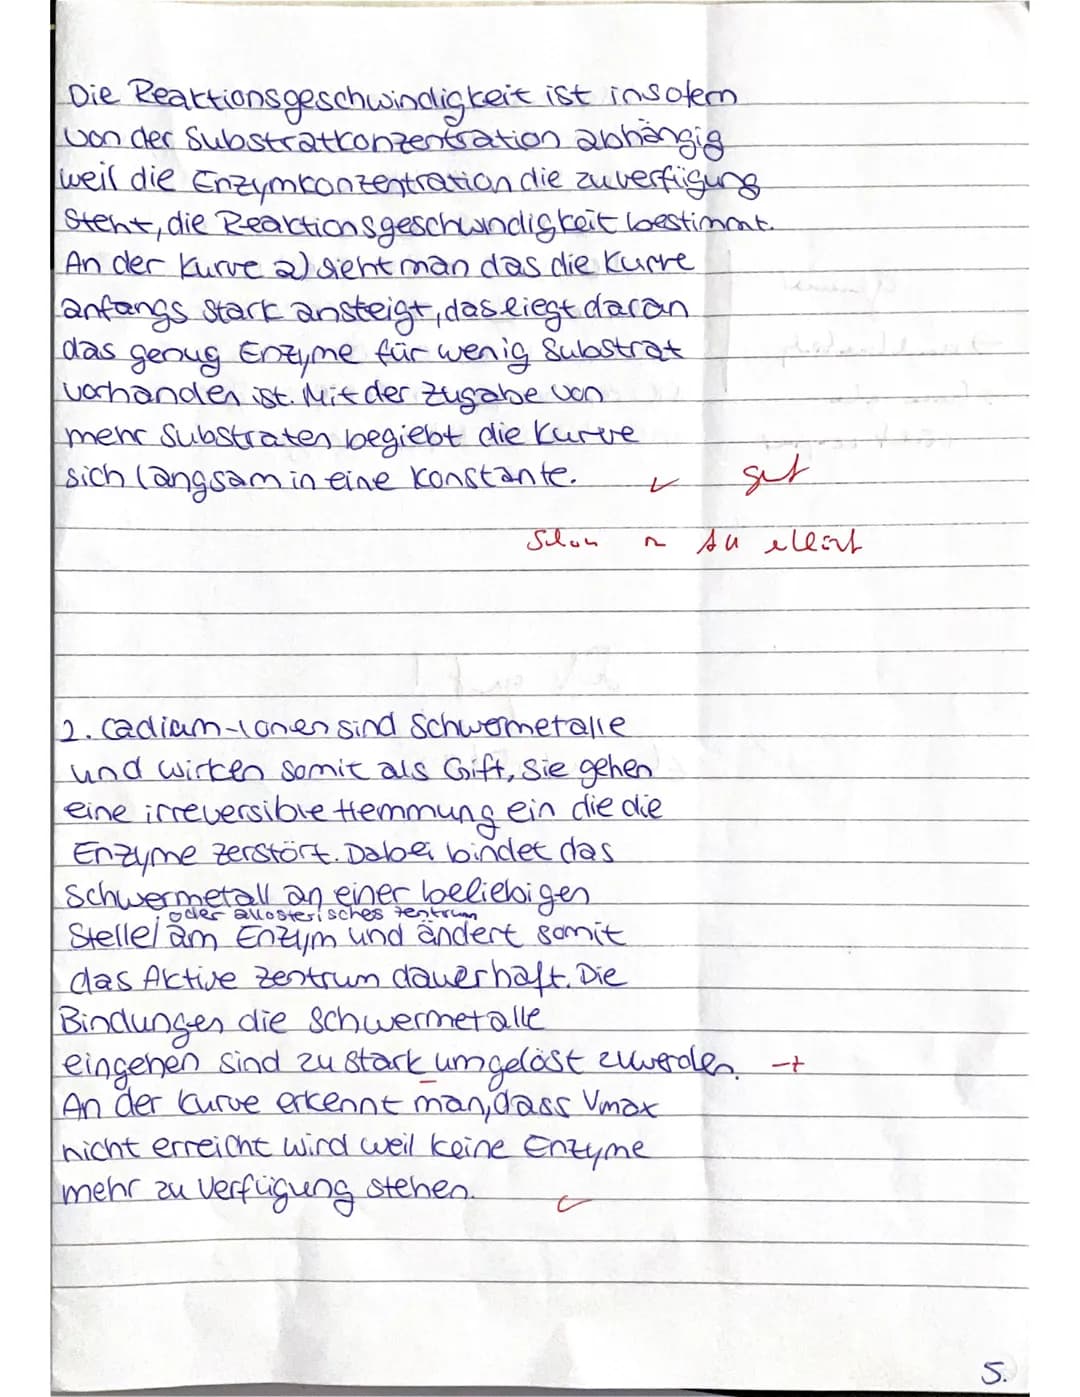 Die Reaktionsgeschwindigkeit ist insofern
von der Substratkonzentration abhängig
weil die Enzymkonzentration die zuverfügung
steht, die Reaktionsgeschwindigkeit bestimmt.
An der Kurve a) sieht man das die Kurve
anfangs stark ansteigt, das liegt daran
das genug Enzyme für wenig Substrat
vorhanden ist. Mit der Zugabe von
mehr Substraten begiebt die Kurve
sich langsam in eine Konstante. ✓ gut
Schon
2. Cadium-Ionen sind Schwermetalle
und wirken somit als Gift, Sie gehen
eine irreversible Hemmung ein die die
Enzyme zerstört. Dabei bindet das
Schwermetall an einer beliebigen
oder allosterisches Zentrum
Stelle/ am Enzym und ändert somit
das Aktive Zentrum dauerhaft. Die
Bindungen die Schwermetalle
eingehen sind zu stark umgelöst zuwerden.
An der Kurve erkennt man, dass Vmax
nicht erreicht wird weil keine Enzyme
mehr zu Verfügung stehen. ✓
5.